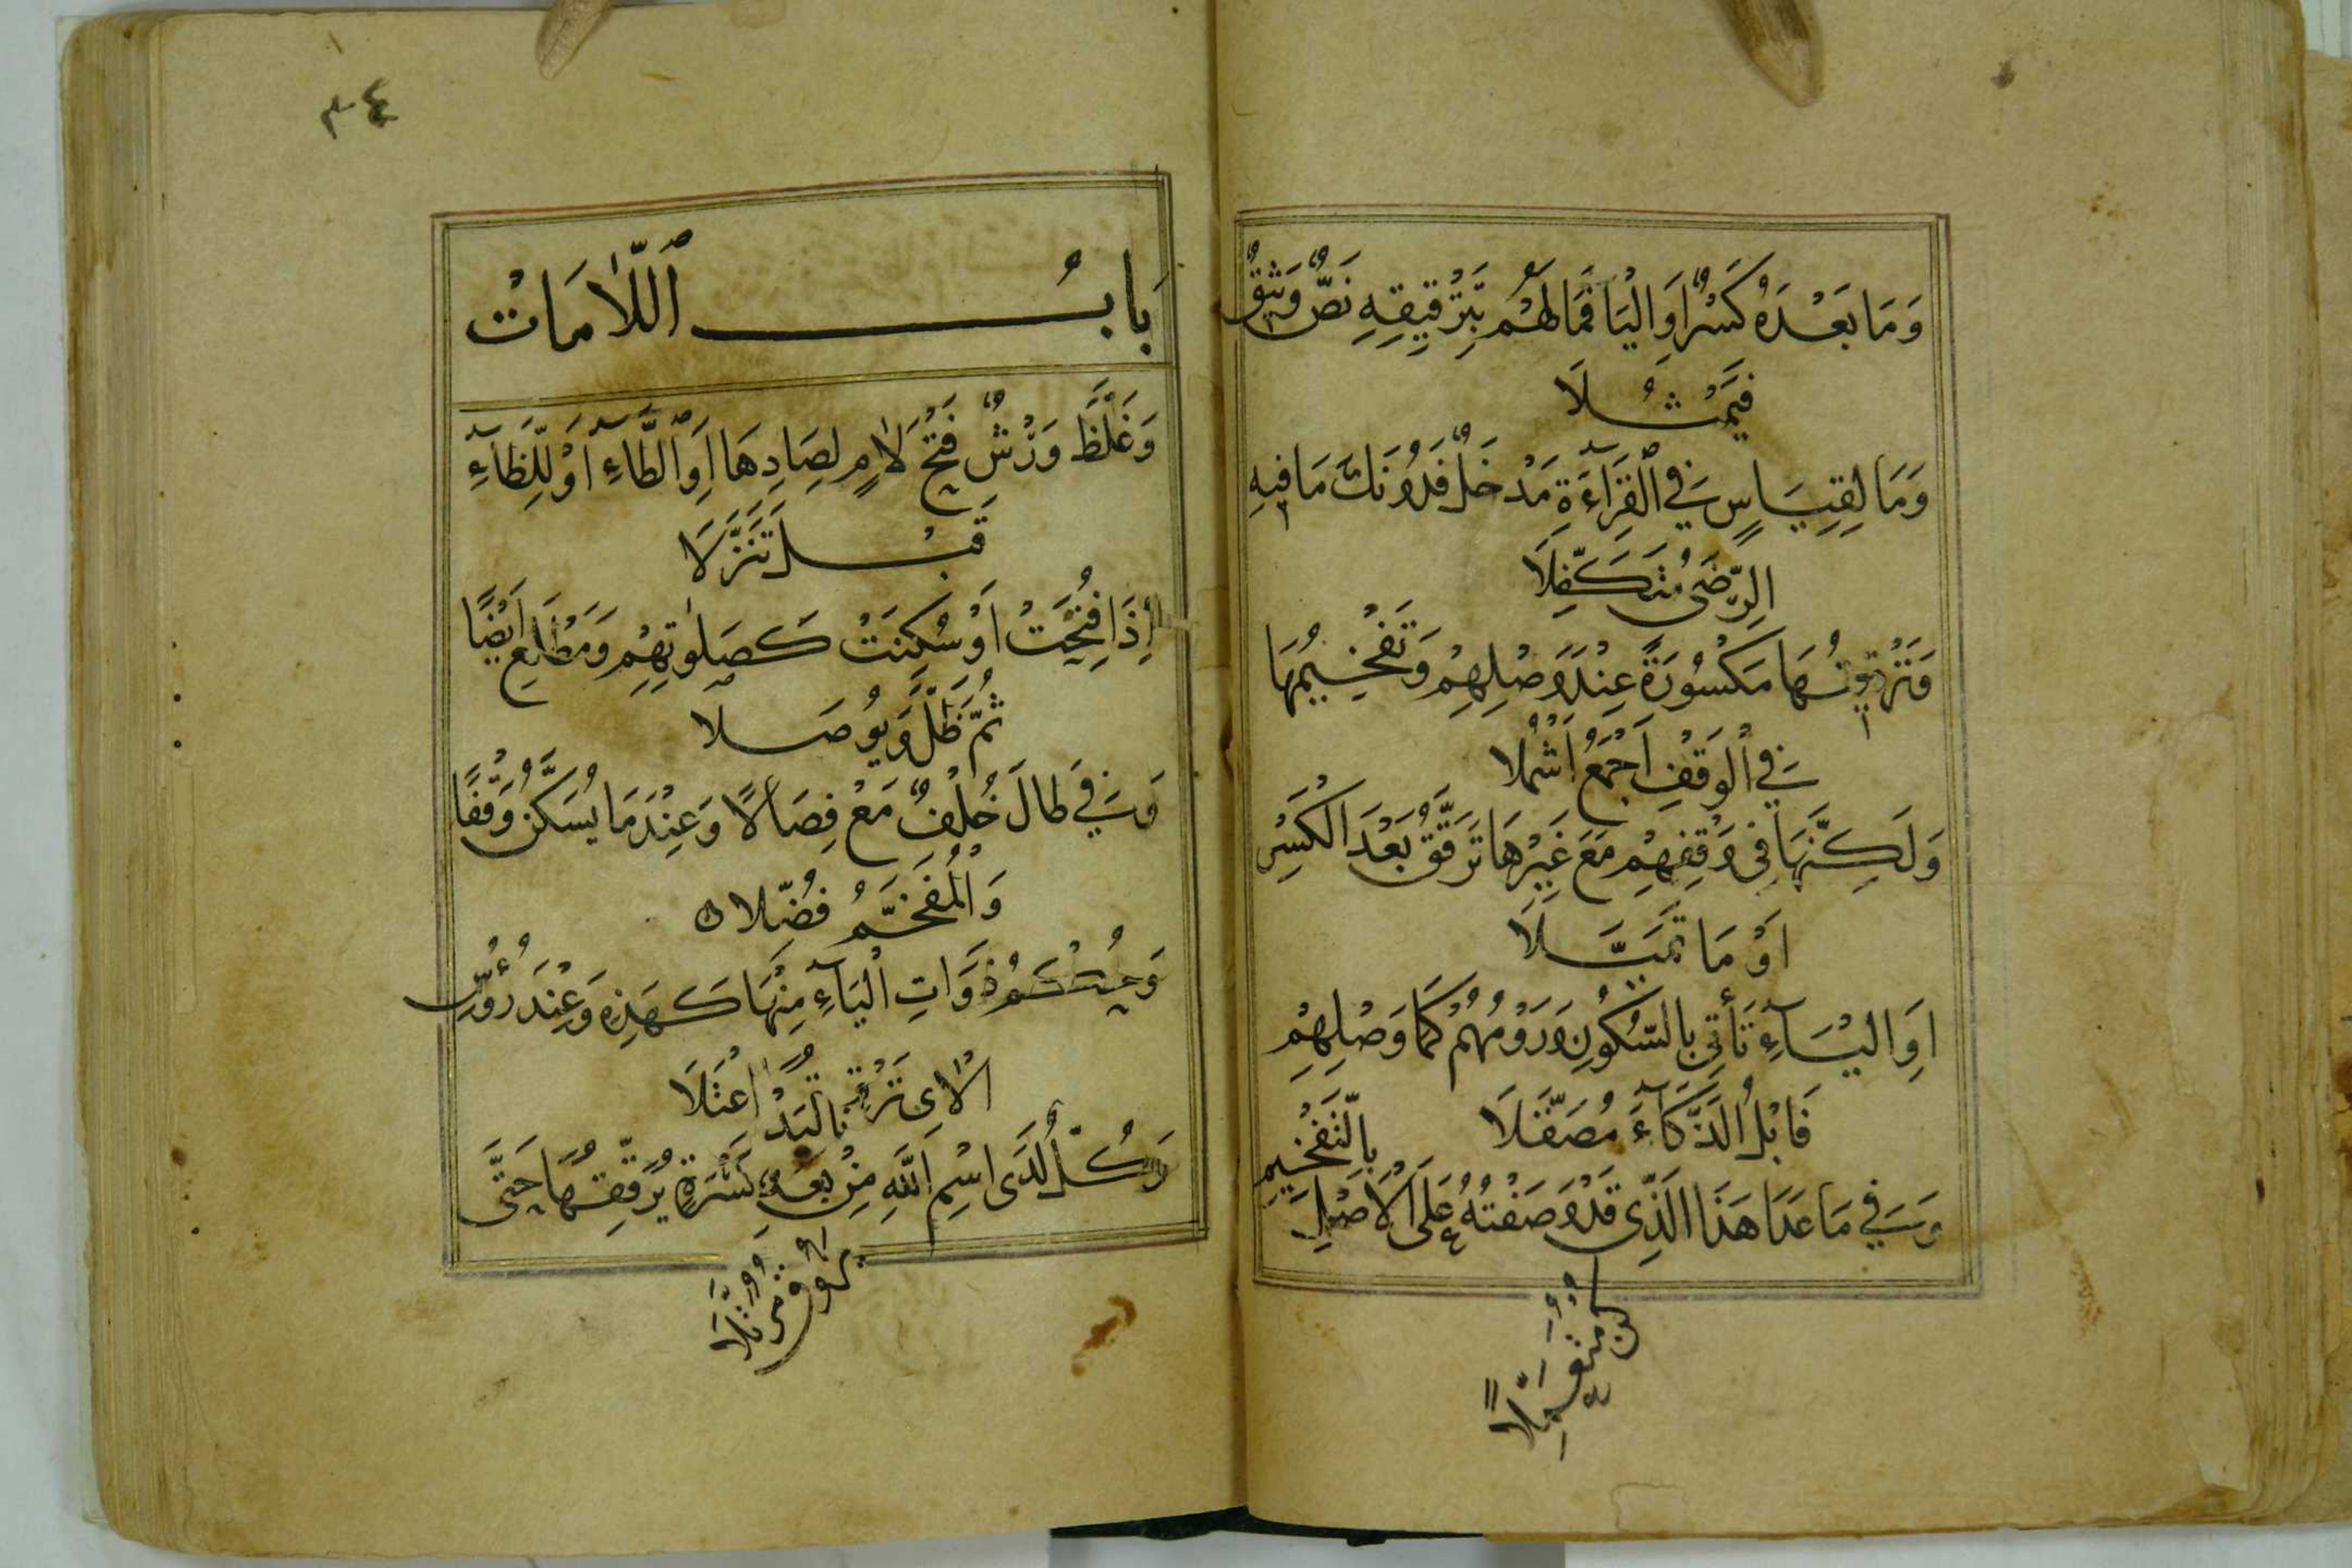 وَمَا بَعْدَهُ كَسْرٌ اَوِ الْيَا فَمَا لَهُمْ بِتَرْقِيقِهِ نَصٌّ وَثِيقٌ
فَيَمْثُلَا
وَمَا لِقِيَاسٍ فِي الْقِرَاءَةِ مَدْخَلٌ فَدُونَكَ مَا فِيهِ
الرِّضَى مُتَكَفِّلَا
وَتَرْقِيقُهَا مَكْسُورَةً عِنْدَ وَصْلِهِمْ وَتَفْخِيمُهَا
فِي الْوَقْفِ اَجْمَعُ اَشْمُلَا
وَلَكِنَّهَا فِي وَقْفِهِمْ مَعَ غَيْرِهَا تُرَقَّقُ بَعْدَ الْكَسْرِ
اَوْ مَا تَمَيَّلَا
اَوِ الْيَآءِ تَأْتِي بِالسُّكُونِ وَرَوْمُهُمْ كَمَا وَصْلِهِمْ
فَابْلُ الذَّكَآءَ مُصَقَّلَا
وَفِي مَا عَدَا هَذَا الَّذِي قَدْ وَصَفْتُهُ عَلَى الْاَصْلِ بِالتَّفْخِيمِ
كُنْ مُتَعَمِّلًا
٣٤
بَابُ اللَّامَاتْ
وَغَلَّظَ وَرْشٌ فَتْحَ لَامٍ لِصَادِهَا اَوِ الطَّاءِ اَوْ لِلظَّاءِ
قَبْلُ تَنَزُّلَا
اِذَا فُتِحَتْ اَوْ سُكِنَتْ كَصَلٰوتِهِمْ وَمَطْلَعِ اَيْضًا
ثُمَّ ظَلَّ وَيُوصَلَا
وَفِي طَالَ خُلْفٌ مَعْ فِصَالًا وَعِنْدَمَا يُسَكَّنُ وَقْفًا
وَالْمُفَخَّمُ فُضِّلَا
وَحُكْمُ ذَوَاتِ الْيَآءِ مِنْهَا كَهَذِهِ وَعِنْدَ رُؤُسِ
الْاٰيِ تَرْقِيقُهَا اعْتَلَا
وَكُلٌّ لَدَى اسْمِ اللَّهِ مِنْ بَعْدِ كَسْرَةٍ يُرَقِّقُهَا حَتَّى
يَرُوقَ مُرَتَّلَا